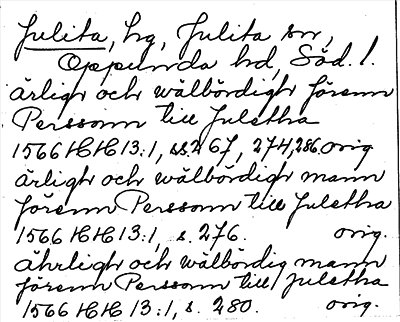 Julita, hg, Julita sn,
Oppunda hd, Söd. l.
ärligh och wälbördigh förenn
Perssonn till Juletha
1566 HH 13:1, ss. 267, 274, 286 orig
ärligh och wälbördigh mann
förenn Perssonn till Juletha
1566 HH 13:1, s. 276. orig.
ährligh och wälbördig mann
förenn Perssonn till Juletha
1566 HH 13:1, s. 280. orig.